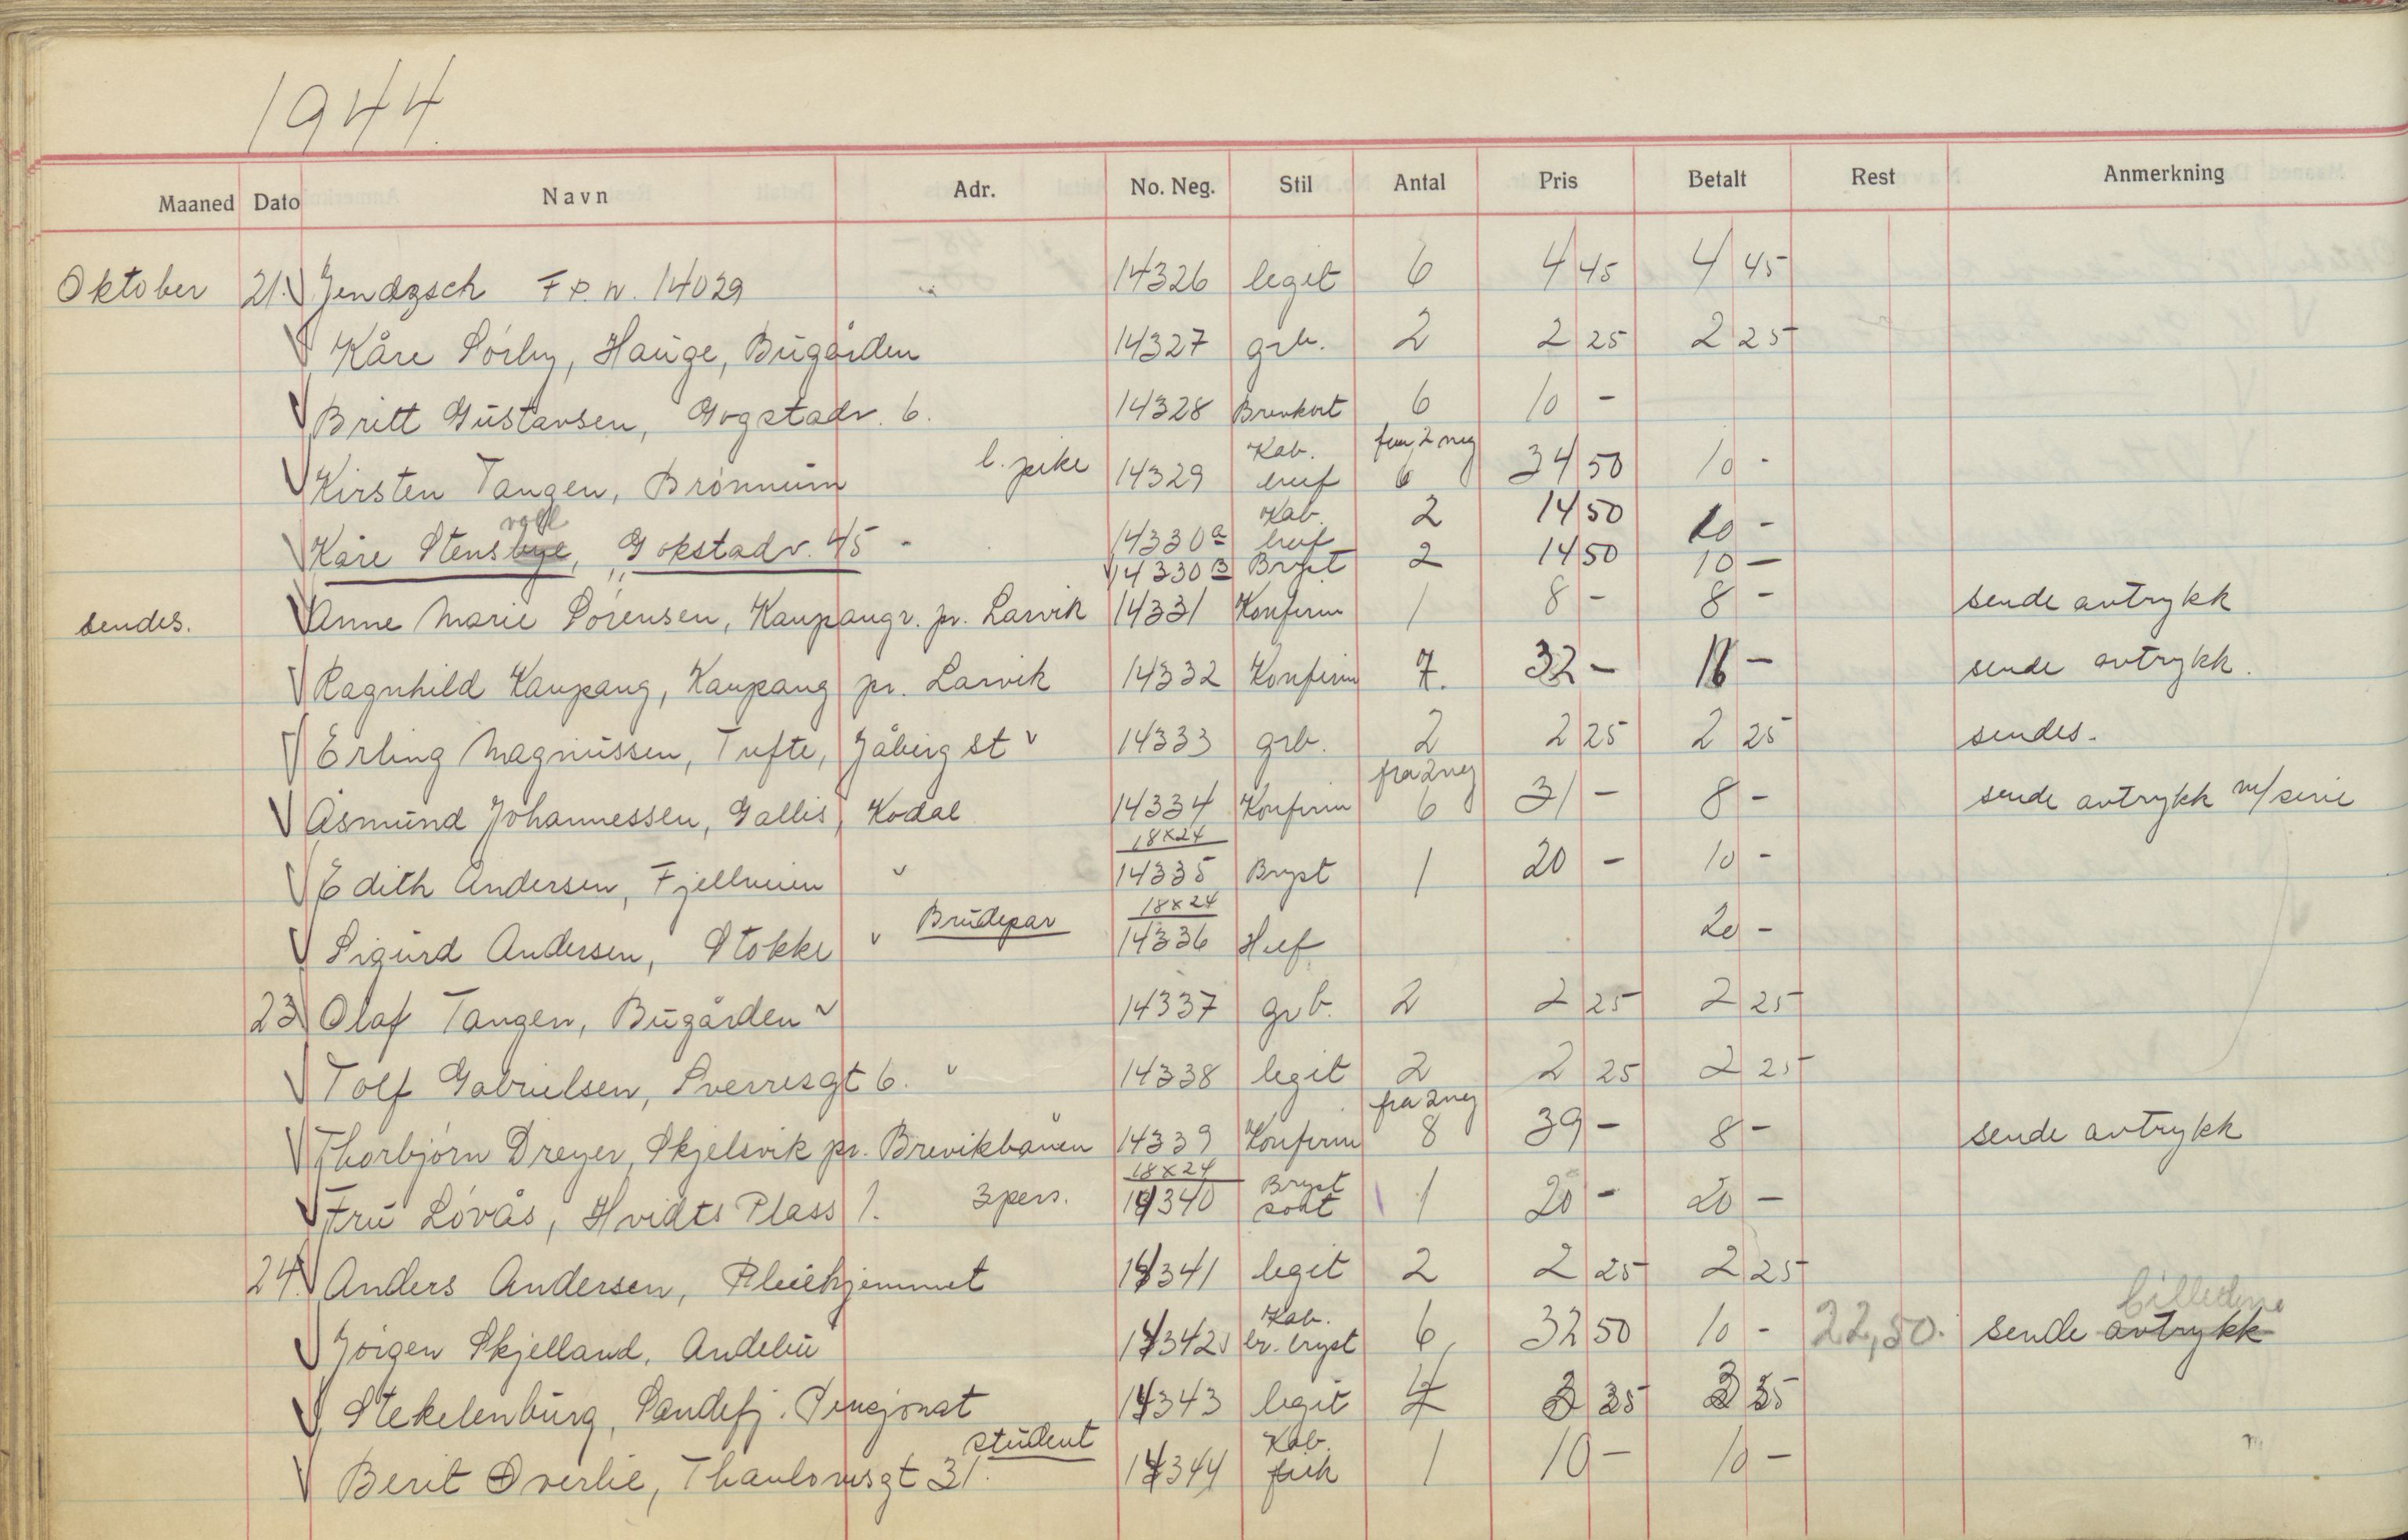 1944.
Maaned Dato Navn Adr. No. Neg. Stil Antal Pris Betalt Rest Anmerkning
Oktober 21. Jendzsch F.P.N. 14029 14326 legit 6 4 45 4 45
Kåre Sörby, Hauge, Bugården 14327 grb. 2 2 25 2 25
Britt Gustavsen, Gogstadv. 6. 14328 Brevkort 6 10 -
Kirsten Tangen, Brönnum l. pike 14329 Kab. huf fra 2 neg 6 34 50 10 -
Kåre Stensbye, voll Gokstadv. 45 - 14330a Kab. huf 2 14 50 10 -
14330B Bryst 2 14 50 10 -
sendes. Anne Marie Sörensen, Kaupangv. pr. Larvik 14331 Konfirm 1 8 - 8 - sende avtrykk
Ragnhild Kaupang, Kaupang pr. Larvik 14332 Konfirm 7. 32 - 16 - sende avtrykk.
Erling Magnussen, Tufte, Jåberg st 14333 grb. 2 2 25 2 25 sendes.
Åsmund Johannessen, Gallis, Kodal 14334 Konfirm fra 2 neg 6 31 - 8 - sende avtrykk m/ serie
Edith Andersen, Fjellveien 18x24 14335 Bryst 1 20 - 10 -
Sigurd Andersen, Stokke Brudepar 18x24 14336 Huf 20 -
23 Olaf Tangen, Bugården 14337 grb. 2 2 25 2 25
Tolf Gabrielsen, Sverresgt 6. 14338 legit 2 2 25 2 25
Thorbjörn Dreyer, Skjelsvik pr. Brevikbanen 14339 Konfirm fra 2 neg 8 39 - 8 - sende avtrykk
Fru Lövås, Hvidts Plass 1. 3 pers. 18x24 14340 Bryst sort 1 20 - 20 -
24. Anders Andersen, Pleiehjemmet 14341 legit 2 2 25 2 25
Jörgen Skjelland, Andebu 14342 Kab. br. bryst 6 32 50 10 - 22,50. sende avtrykk billedene
Stekelenburg, Sandefj. Pensjonat 14343 legit 4 3 35 3 35
Berit Överlie, Thaulowsgt 31. student 14344 Kab. 1 10 - 10 -